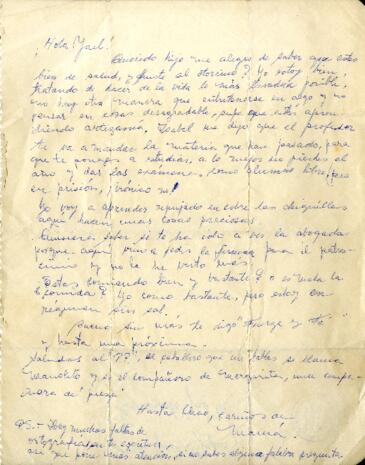 ¡Hola Yael!
Querido hijo me alegro de saber que estas
bien de salud, ¿fuiste al doctor? Yo estoy bien,
tratando de hacer de la vida lo más llevadera posible,
no hay otra manera que entretenerse en algo y no
pensar en cosas desagradable, supe que estás apren
diendo artesania. Isabel me dijo que el profesor
te va a mandar la materia que han pasado, para
que te pongas a estudiar, a lo mejor no pierdes el
año y das los examenes, como alumno libre, pero
en prisión, ¡irónico no!
Yo voy a aprender repujado en cobre las chiquillas
aquí hacen unas cosas preciosas.
Quisiera saber si te ha ido a ver la abogada
porque aquí vino a pedir la firma para el patro-
cinio y no la he visto más.
¿Estas comiendo bien y bastante? o es mala la
comida? Yo como bastante, pero estoy en
regimen sin sal.
Bueno sin más te digo y
hasta una proxima.
Saludos al, se caballero que me hablas se llama
Manolito y es el compañero de Margarita, una compa-
ñera de presa
Hasta Chao, cariños de
Mamá.
PS.- Hay muchas faltas de
ortografia en tu escritura,
así que pone más atención, si no sabes alguna palabra pregunta.